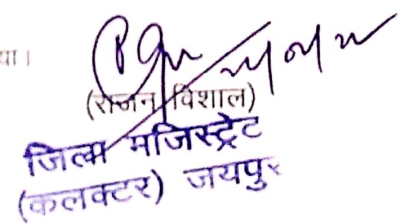 या।
(राजन विशाल)
जिला मजिस्ट्रेट
(कलक्टर) जयपुर